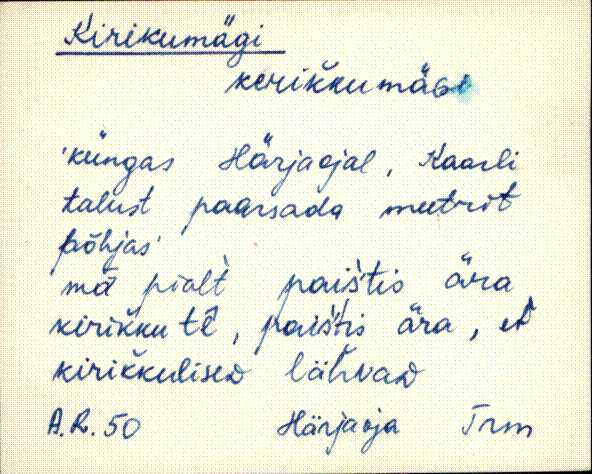 Kirikumägi
kerik̆kumäGi
'küngas Härjaojal, Kaarli
talust paarsada meetrit
põhjas'
mǟ pialt̀ pais̀tis ära
kirik̆ku tē̂, pais̀tis ära, et
kirik̆kuliseD läh̆vaD
A.R. 50 Härjaoja Trm